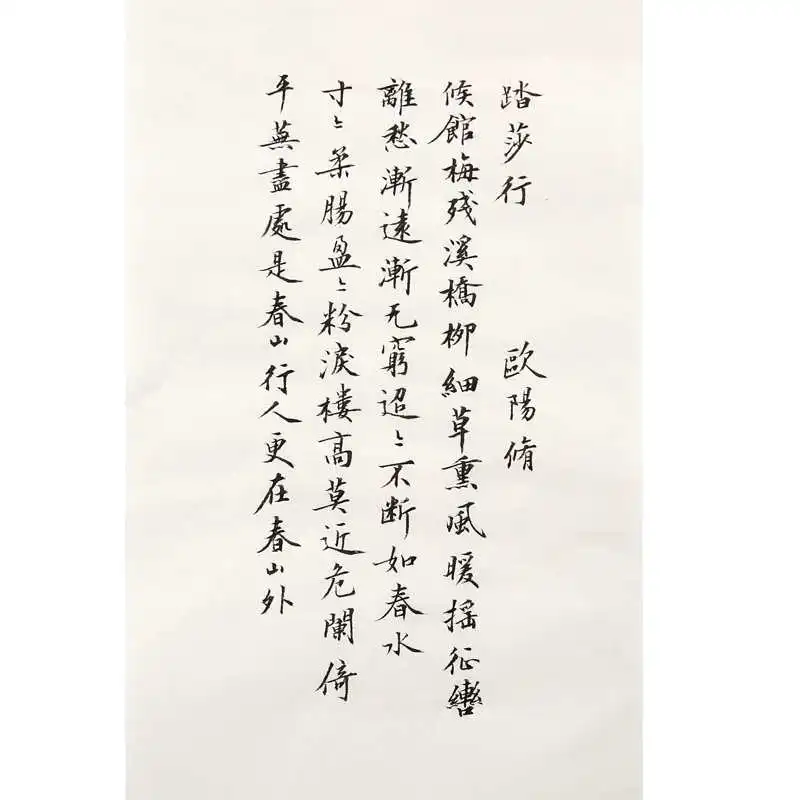 踏莎行 歐陽脩
候館梅殘溪橋柳細草熏風暖揺征轡
離愁漸遠漸无窮迢〻不断如春水
寸〻柔腸盈〻粉淚樓高莫近危闌倚
平蕪盡處是春山行人更在春山外